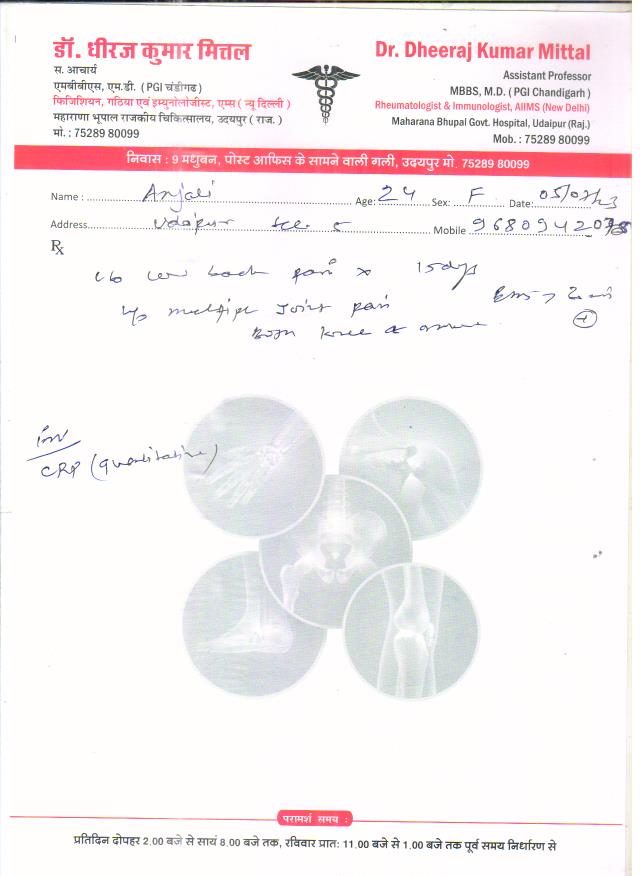 डॉ. धीरज कुमार मित्तल
स. आचार्य
एमबीबीएस, एम.डी. ( PGI चंडीगढ )
फिजिशियन, गठिया एवं इम्युनोलोजीस्ट, एम्स ( न्यू दिल्ली )
महाराणा भूपाल राजकीय चिकित्सालय, उदयपुर ( राज. )
मो. : 75289 80099
Dr. Dheeraj Kumar Mittal
Assistant Professor
MBBS, M.D. ( PGI Chandigarh )
Rheumatologist & Immunologist, AIIMS (New Delhi)
Maharana Bhupal Govt. Hospital, Udaipur (Raj.)
Mob. : 75289 80099
निवास : 9 मधुबन, पोस्ट आफिस के सामने वाली गली, उदयपुर मो. 75289 80099
Name : Anjali Age: 24 Sex: F Date:
Address Udaipur Sec. 5 Mobile
℞
c/o low back pain x 15 days
multiple Joint pain
Both knee
Inv
CRP (quantitative)
परामर्श समय :
प्रतिदिन दोपहर 2.00 बजे से सायं 8.00 बजे तक, रविवार प्रात: 11.00 बजे से 1.00 बजे तक पूर्व समय निर्धारण से